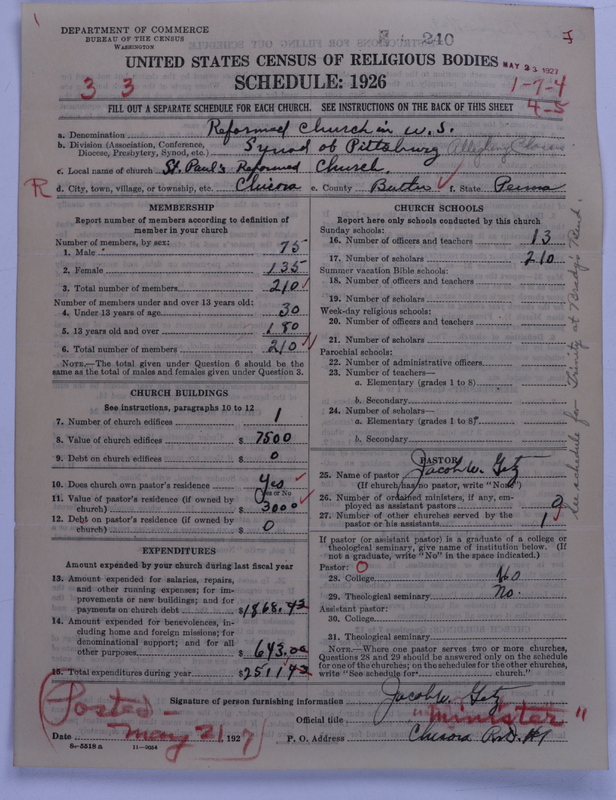 DEPARTMENT OF COMMERCE
BUREAU OF THE CENSUS
WASHINGTON
240
UNITED STATES CENSUS OF RELIGIOUS BODIES
MAY 23 1927
SCHEDULE: 1926
3 3
1-7-4
4-5
FILL OUT A SEPARATE SCHEDULE FOR EACH CHURCH. SEE INSTRUCTIONS ON THE BACK OF THIS SHEET
a. Denomination Reformed Church in U.S.
b. Division (Association, Conference, Diocese, Presbytery, Synod, etc.) Synod of Pittsburg Allegheny Classis
c. Local name of church St. Paul's Reformed Church.
R d. City, town, village, or township, etc. Chicora e. County Butler f. State Penna
MEMBERSHIP
Report number of members according to definition of
member in your church
Number of members, by sex:
1. Male 75
2. Female 135
3. Total number of members 210
Number of members under and over 13 years old:
4. Under 13 years of age 30
5. 13 years old and over 180
6. Total number of members 210
NOTE.—The total given under Question 6 should be
same as the total of males and females given under Question 3.
CHURCH BUILDINGS
See instructions, paragraphs 10 to 12
7. Number of church edifices 1
8. Value of church edifices $ 7500
9. Debt on church edifices $ 0
10. Does church own pastor's residence Yes
Yes or No
11. Value of pastor's residence (if owned by
church) $ 3000
12. Debt on pastor's residence (if owned by
church) $ 0
EXPENDITURES
Amount expended by your church during last fiscal year
13. Amount expended for salaries, repairs,
and other running expenses; for im-
provements or new buildings; and for
payments on church debt $1868.42
14. Amount expended for benevolences, in-
cluding home and foreign missions; for
denominational support; and for all
other purposes $ 643.00
15. Total expenditures during year $2511.42
CHURCH SCHOOLS
Report here only schools conducted by this church
Sunday schools:
16. Number of officers and teachers 13
17. Number of scholars 210
Summer vacation Bible schools:
18. Number of officers and teachers
19. Number of scholars
Week-day religious schools:
20. Number of officers and teachers
21. Number of scholars
Parochial schools:
22. Number of administrative officers
23. Number of teachers—
a. Elementary (grades 1 to 8)
b. Secondary
24. Number of scholars—
a. Elementary (grades 1 to 8)
b. Secondary
See schedule for Trinity at Brady's Bend.
PASTOR
25. Name of pastor Jacob W. Getz
(If church has no pastor, write "None")
26. Number of ordained ministers, if any, em-
ployed as assistant pastors 0
27. Number of other churches served by the
pastor or his assistants 1
If pastor (or assistant pastor) is a graduate of a college or
theological seminary, give name of institution below. (If
not a graduate, write "No" in the space indicated.)
Pastor: O
28. College No
29. Theological seminary no.
Assistant pastor:
30. College
31. Theological seminary
NOTE.—Where one pastor serves two or more churches,
Questions 28 and 29 should be answered only on the schedule
for one of the churches; on the schedules for the other churches,
write "See schedule for church."
Signature of person furnishing information Jacob W. Getz
Posted-
May 21
Official title "minister"
Date , 1927 P. O. Address Chicora R.D. #1
8—5518 a 11—9054